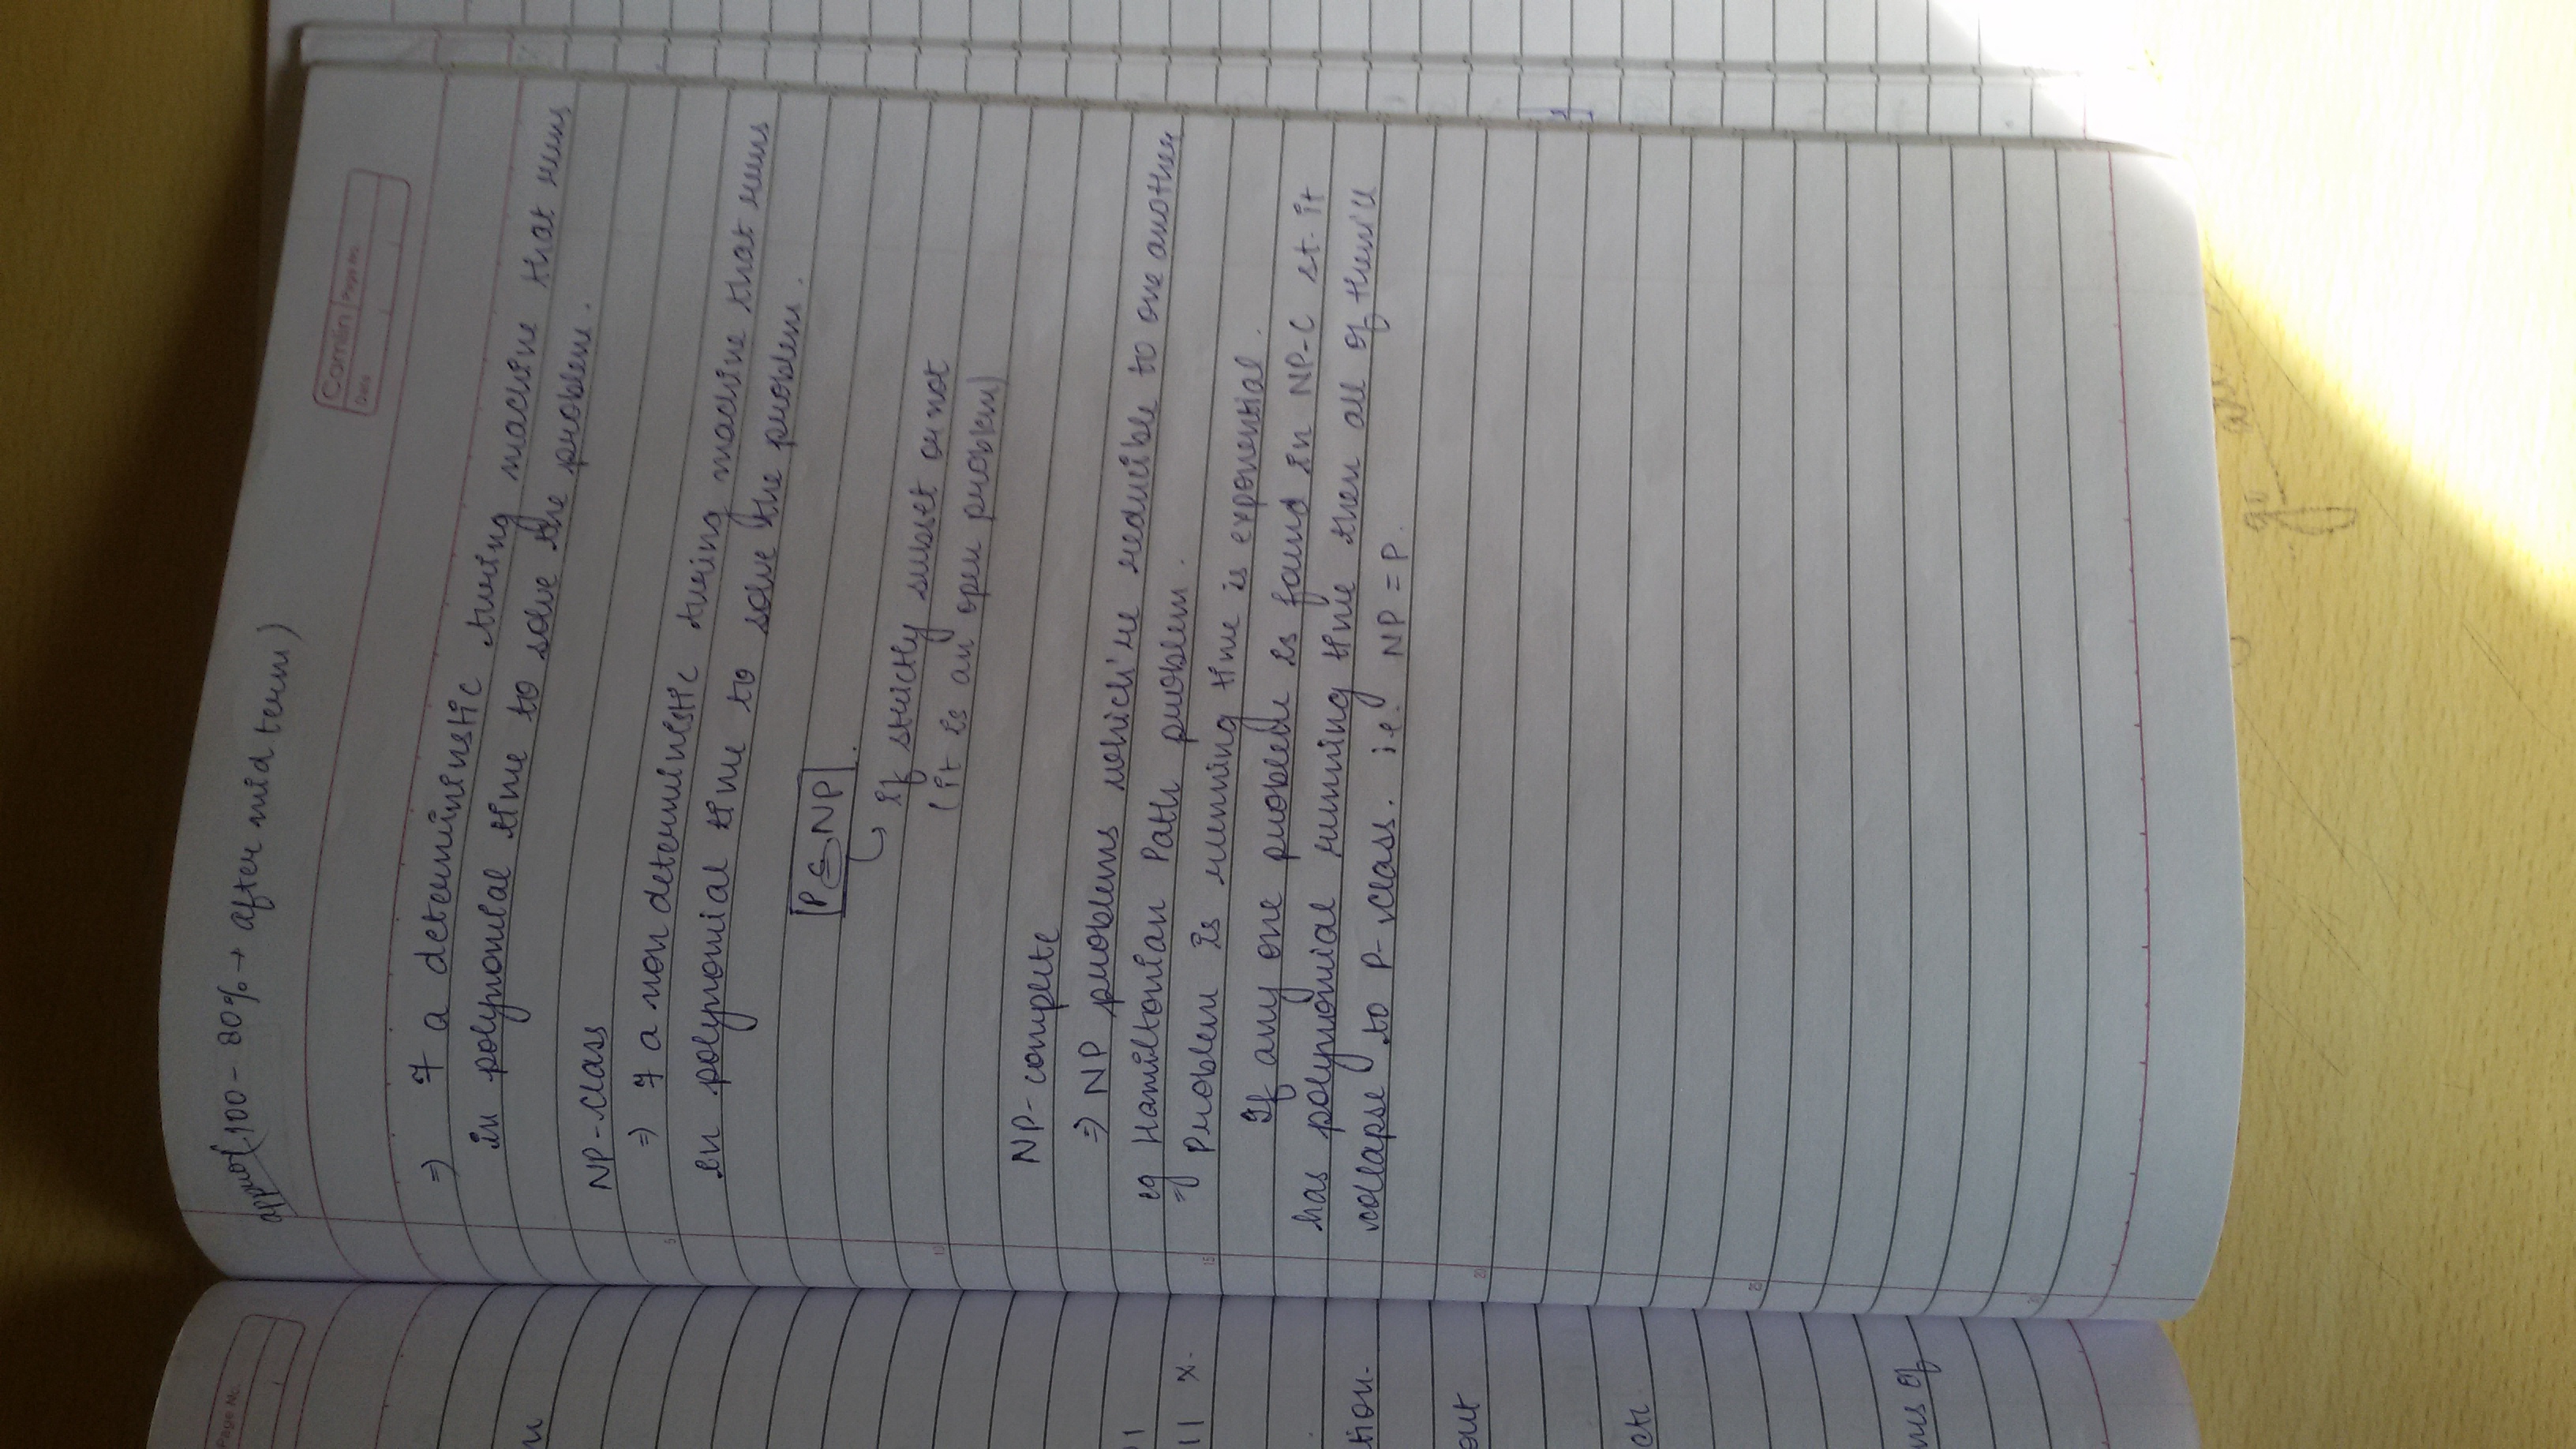 approx (100 - 80% → after mid term)
Camlin Page No.
Date
⇒ ∃ a deterministic turing machine that runs
in polynomial time to solve the problem.
NP-class
⇒ ∃ a non deterministic turing machine that runs
in polynomial time to solve the problem.
P ⊆ NP.
↳ if strictly subset or not
(it is an open problem)
NP-complete
⇒ NP problems which're reducible to one another
eg Hamiltonian Path problem.
Problem is running time is exponential.
If any one problem is found in NP-C st. it
has polynomial running time then all of them'll
collapse to P-class. i.e. NP = P.
Page No.
11 x.
tion.
out
of
go